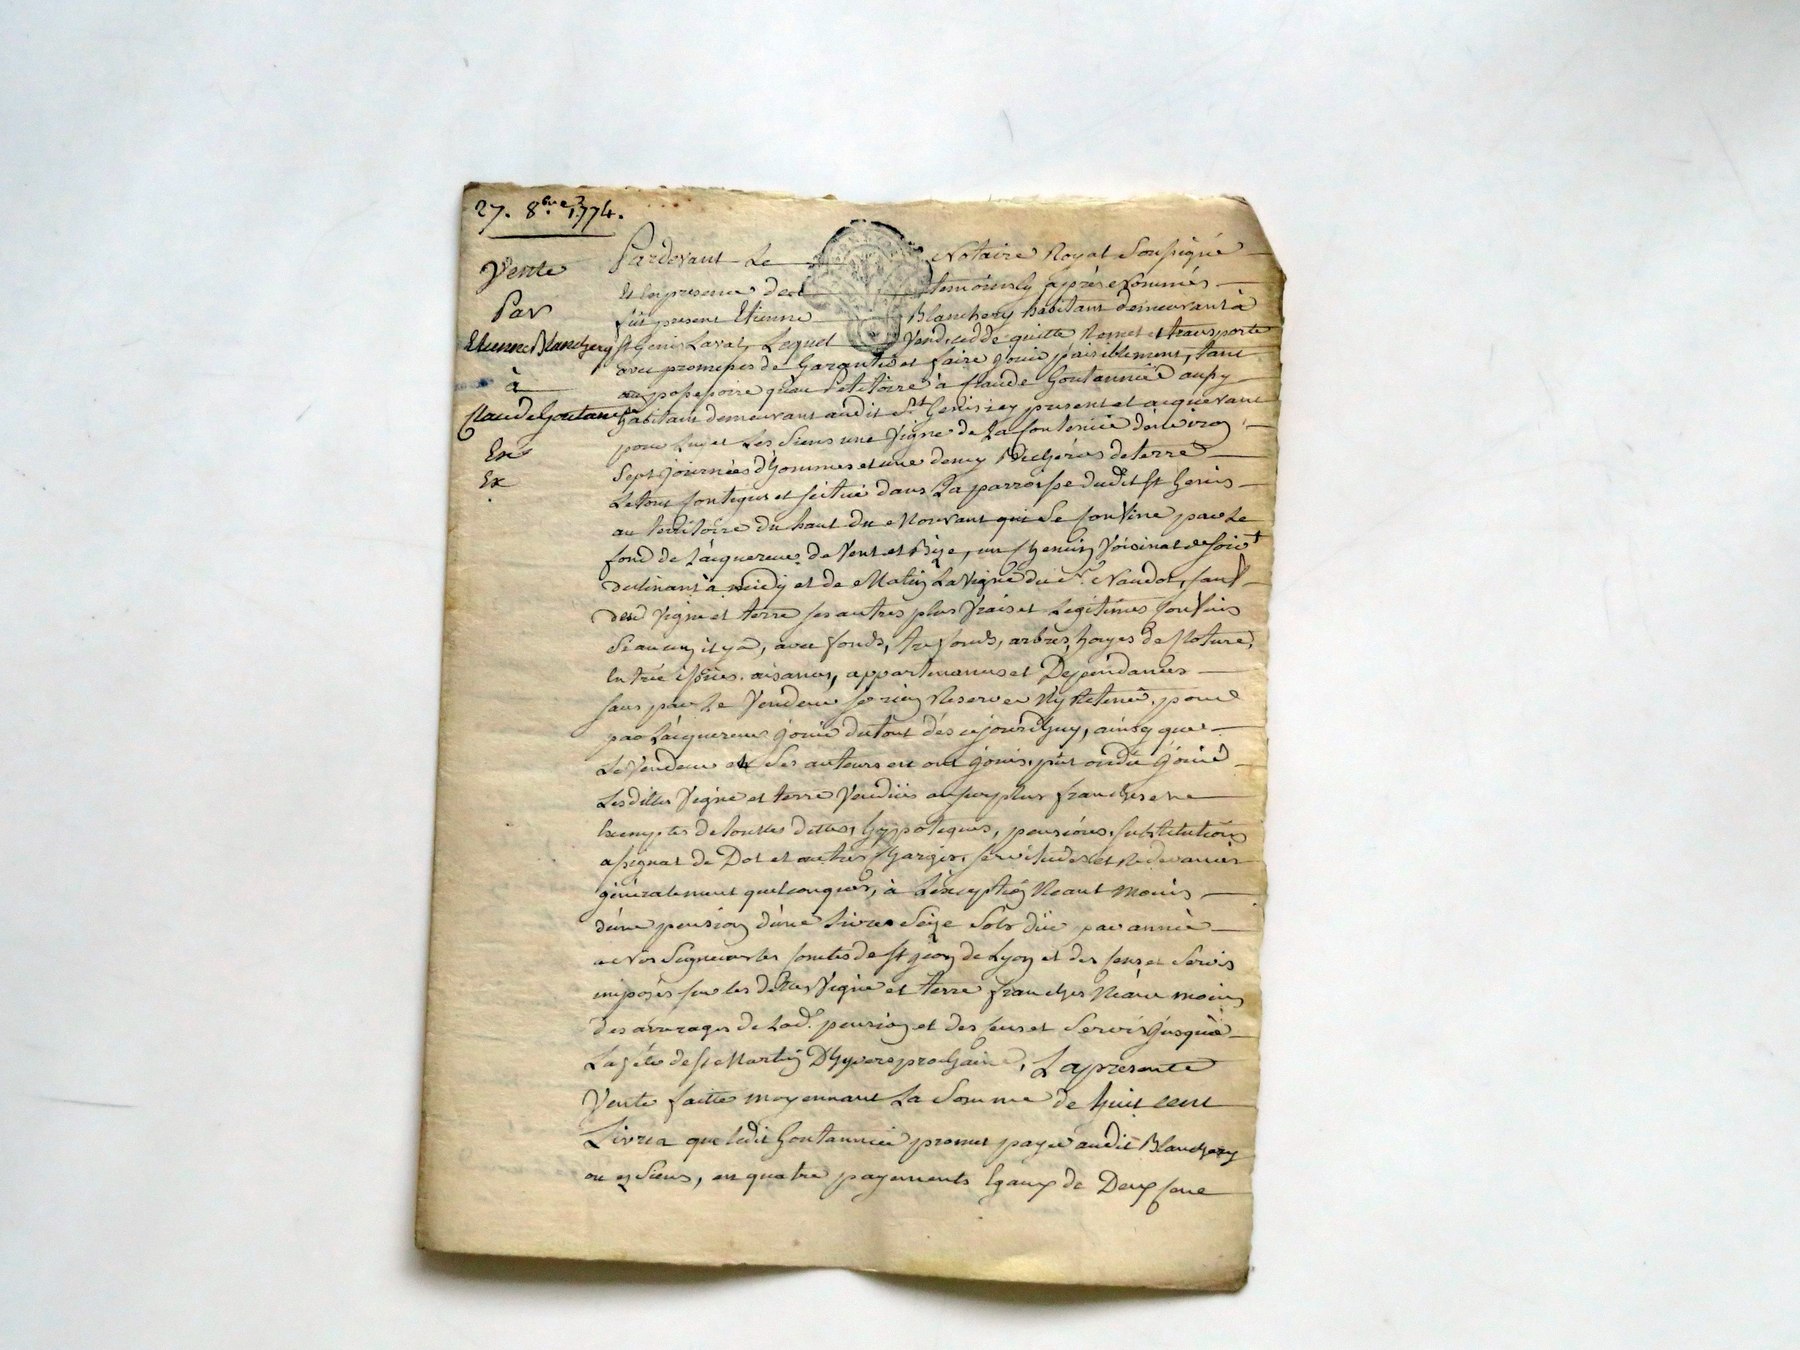 27. 8bre 1774.
Vente
Par
Etienne Blanchery
à
Claude Goutannier
Ex
Pardevant Le Notaire Royal Soussigné
Et en presence des temoins cy après Nommés
fut present Etienne Blanchery habitant demeurant à
St Genis Laval, Lequel Vend, cedde quitte Remet et transporte
avec promesses de Garantie et faire jouir paisiblement, tant
au possessoire qu'au Petitoire à Claude Goutannier aussy
habitant demeurant audit St Genis icy present et acquerant
pour Luy et Les Siens une Vigne de La Contenue d'environ
Sept journées d'hommes et une demy Bicherée de terre
Le tout Contigus et scitué dans La parroisse dudit St Genis
au territoire du haut du qui Se Confine par Le
fond de L'acquereur de Vent et Bize, un Chemin Voisinal de Soir
declinant à midy et de Matin La Vigne du Sr. Naudot, sauf
des Vigne et terre ses autres plus Vrais et Legitimes Confins
Si aucun il y a, avec fonds, trefonds, arbres, hayes de Cloture,
Entrée issues, aisances, appartenances et Dependances
Sans par Le Vendeur se rien Reserver Ny Retenir, pour
par L'acquereur jouir du tout dès cejourdhuy, ainsy que
Le Vendeur et Ses auteurs en ont joüis, pû ou dû joüir
Lesdittes Vigne et terre Vendües au surplus franches et
Exemptes de touttes dettes, hyppoteques, pensions, substitutions
assignat de Dot et autres Charges, servitudes et Redevances
généralement quelconques, à L'exception Neant moins
d'une pension d'une Livre Seize Sols düe par année
a Nos Seigneurs les Comtes de St jean de Lyon et des Cens et Servis
imposés sur les dittes Vigne et terre franches Neant moins
des arrerages de Lad. pension et des Cens et Servis jusqu'à
La fête de St Martin D'hyvers prochaine, La presente
Vente faitte moyennant La Somme de huit cent
Livres que ledit Goutannier promet payer audit Blanchery
ou es Siens, en quatre payements Egaux de Deux Cent